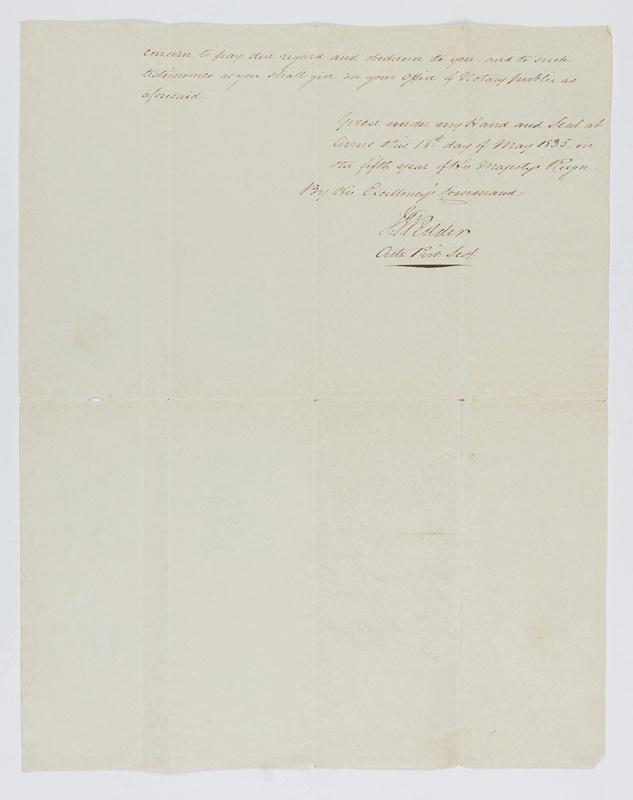 concern to pay due regard and obedience to you and to such
testimonies as you shall give in your Office of Notary public as
aforesaid.
Given under my Hand and Seal at
Arms this 18th day of May 1835. in
the fifth year of His Majesty's Reign.
By His Excellency's Command.
Pedder
Actg Priv. Secy